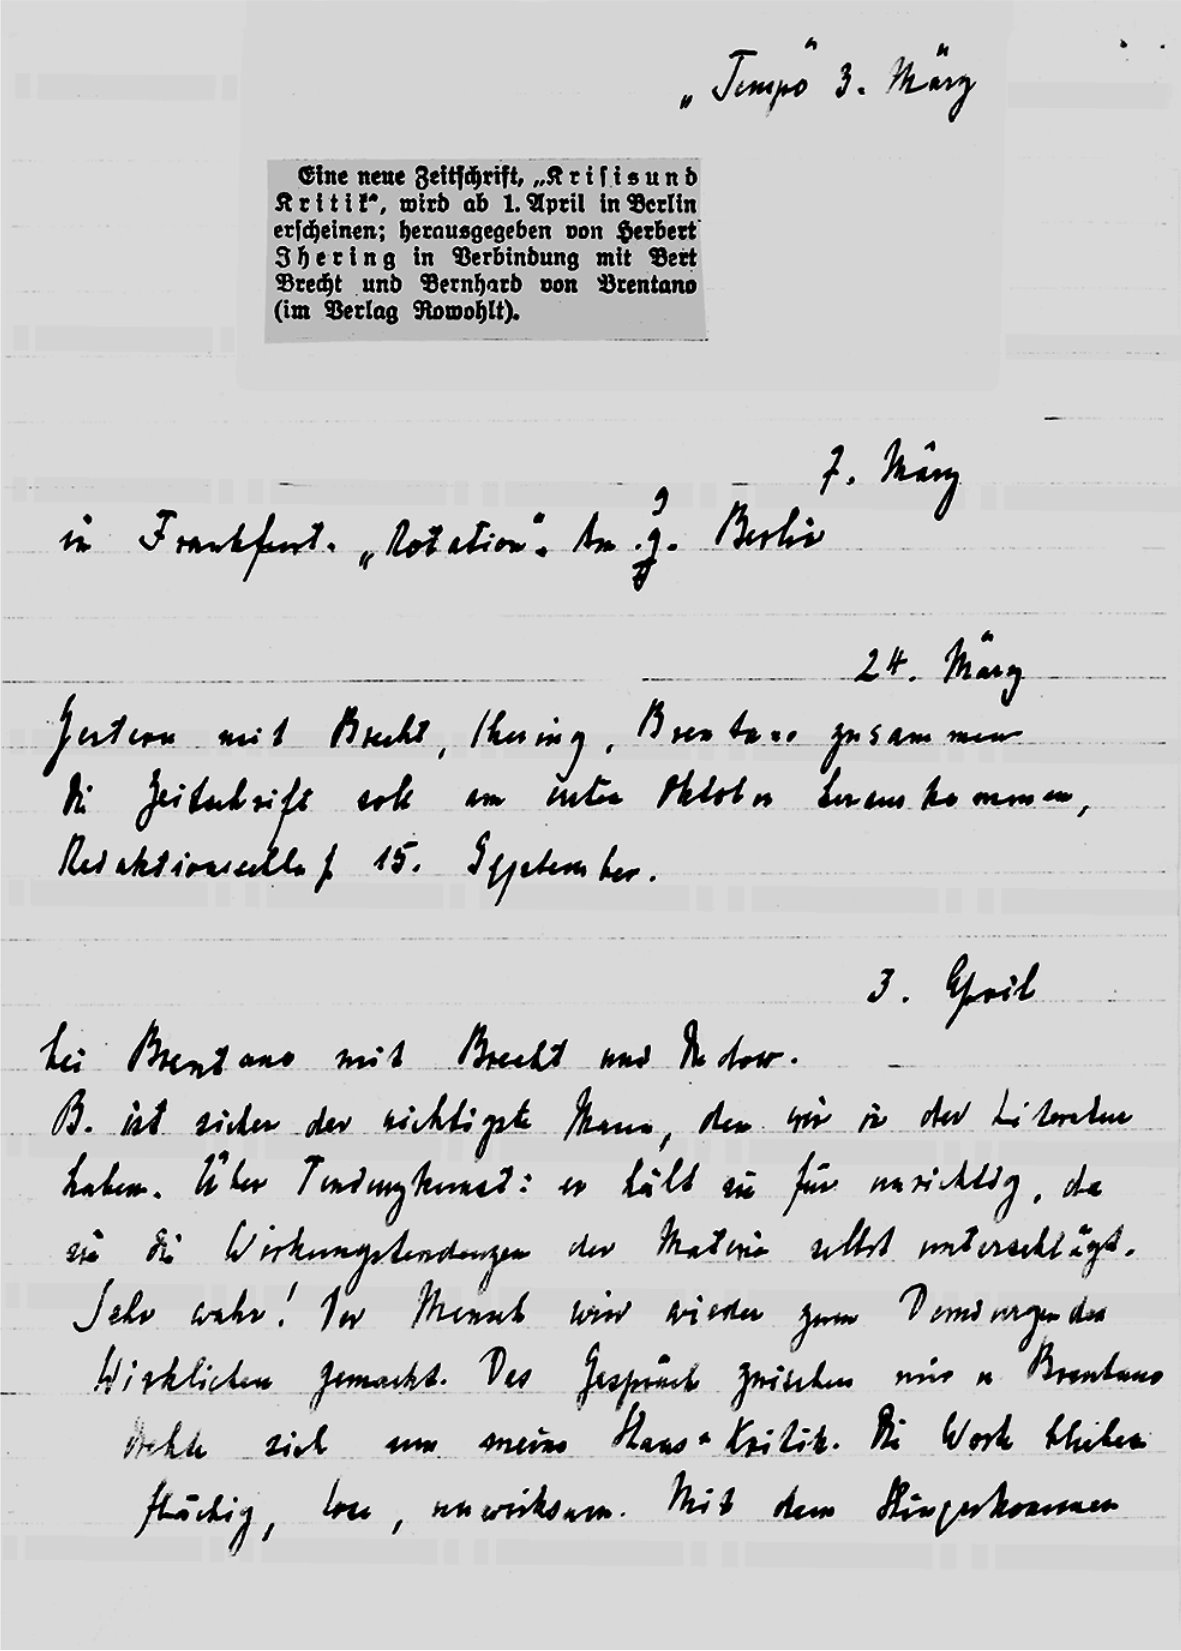 „Tempo" 3. März
Eine neue Zeitschrift, „Krisis und
Kritik“, wird ab 1. April in Berlin
erscheinen; herausgegeben von Herbert
Ihering in Verbindung mit Bert
Brecht und Bernhard von Brentano
(im Verlag Rowohlt).
7. März
in Frankfurt. „Rotation". Am 9. Berlin
24. März
Gestern mit Brecht, Ihering, Brentano zusammen
die Zeitschrift soll am ersten Oktober herauskommen,
Redaktionsschluß 15. September.
3. April
bei Brentano mit Brecht und
B. ist sicher der wichtigste Mann, den wir in der Literatur
haben. Über Tendenzkunst: er hält sie für unrichtig, da
sie die Wirkungstendenzen der Materie selbst unterschlägt.
Sehr wahr! Der Mensch wird wieder zum Demiurgen des
Wirklichen gemacht. Das Gespräch zwischen mir u Brentano
drehte sich um meine Haas-Kritik. Die Worte blieben
flüchtig, lose, unwirksam. Mit dem Hinzukommen